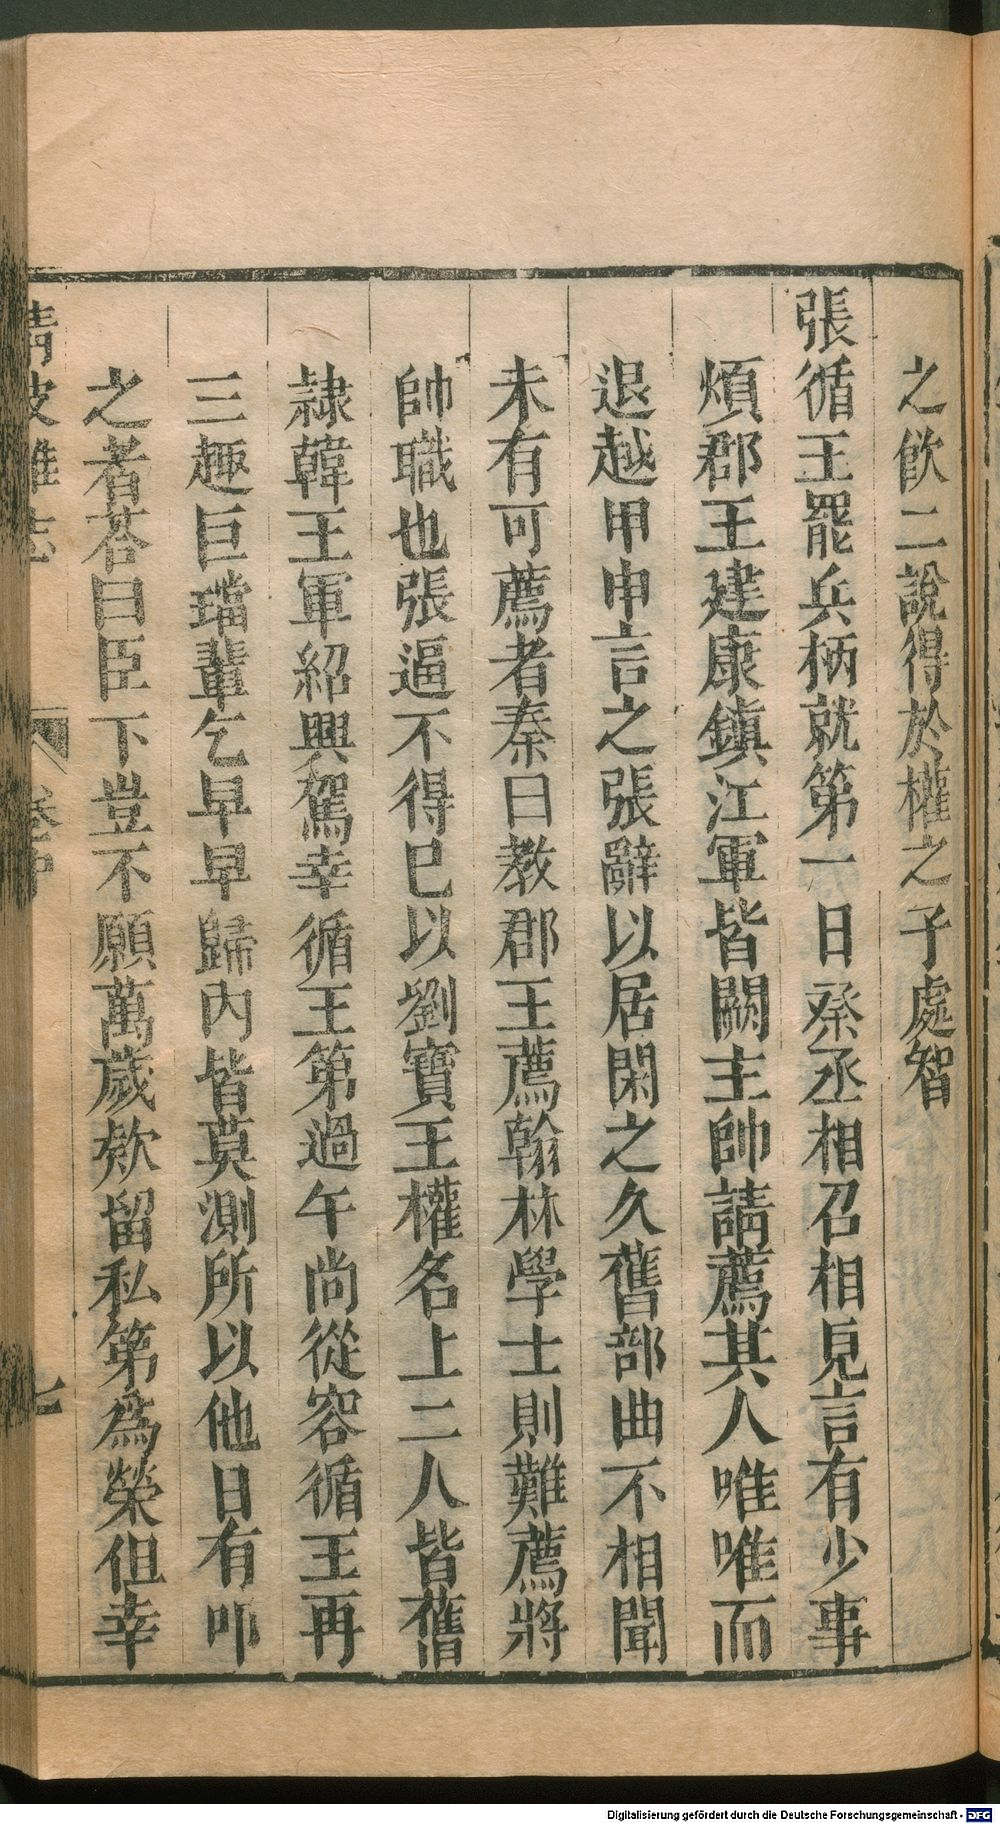 之飲二說得於權之子處智
張循王罷兵柄就第一日秦丞相召相見言有少事
煩郡王建康鎮江軍皆闕主帥請薦其人唯唯而
退越甲申言之張辭以居閑之久舊部曲不相聞
未有可薦者秦曰教郡王薦翰林學士則難薦將
帥職也張逼不得已以劉寶王權名上二人皆舊
隷韓王軍紹興駕幸循王第過午尚從容循王再
三趣巨璫輩乞早早歸內皆莫測所以他日有叩
之者荅曰臣下豈不願萬歲欸留私第為榮但幸
清波雜志
卷中
七
Digitalisierung gefördert durch die Deutsche Forschungsgemeinschaft - DFG